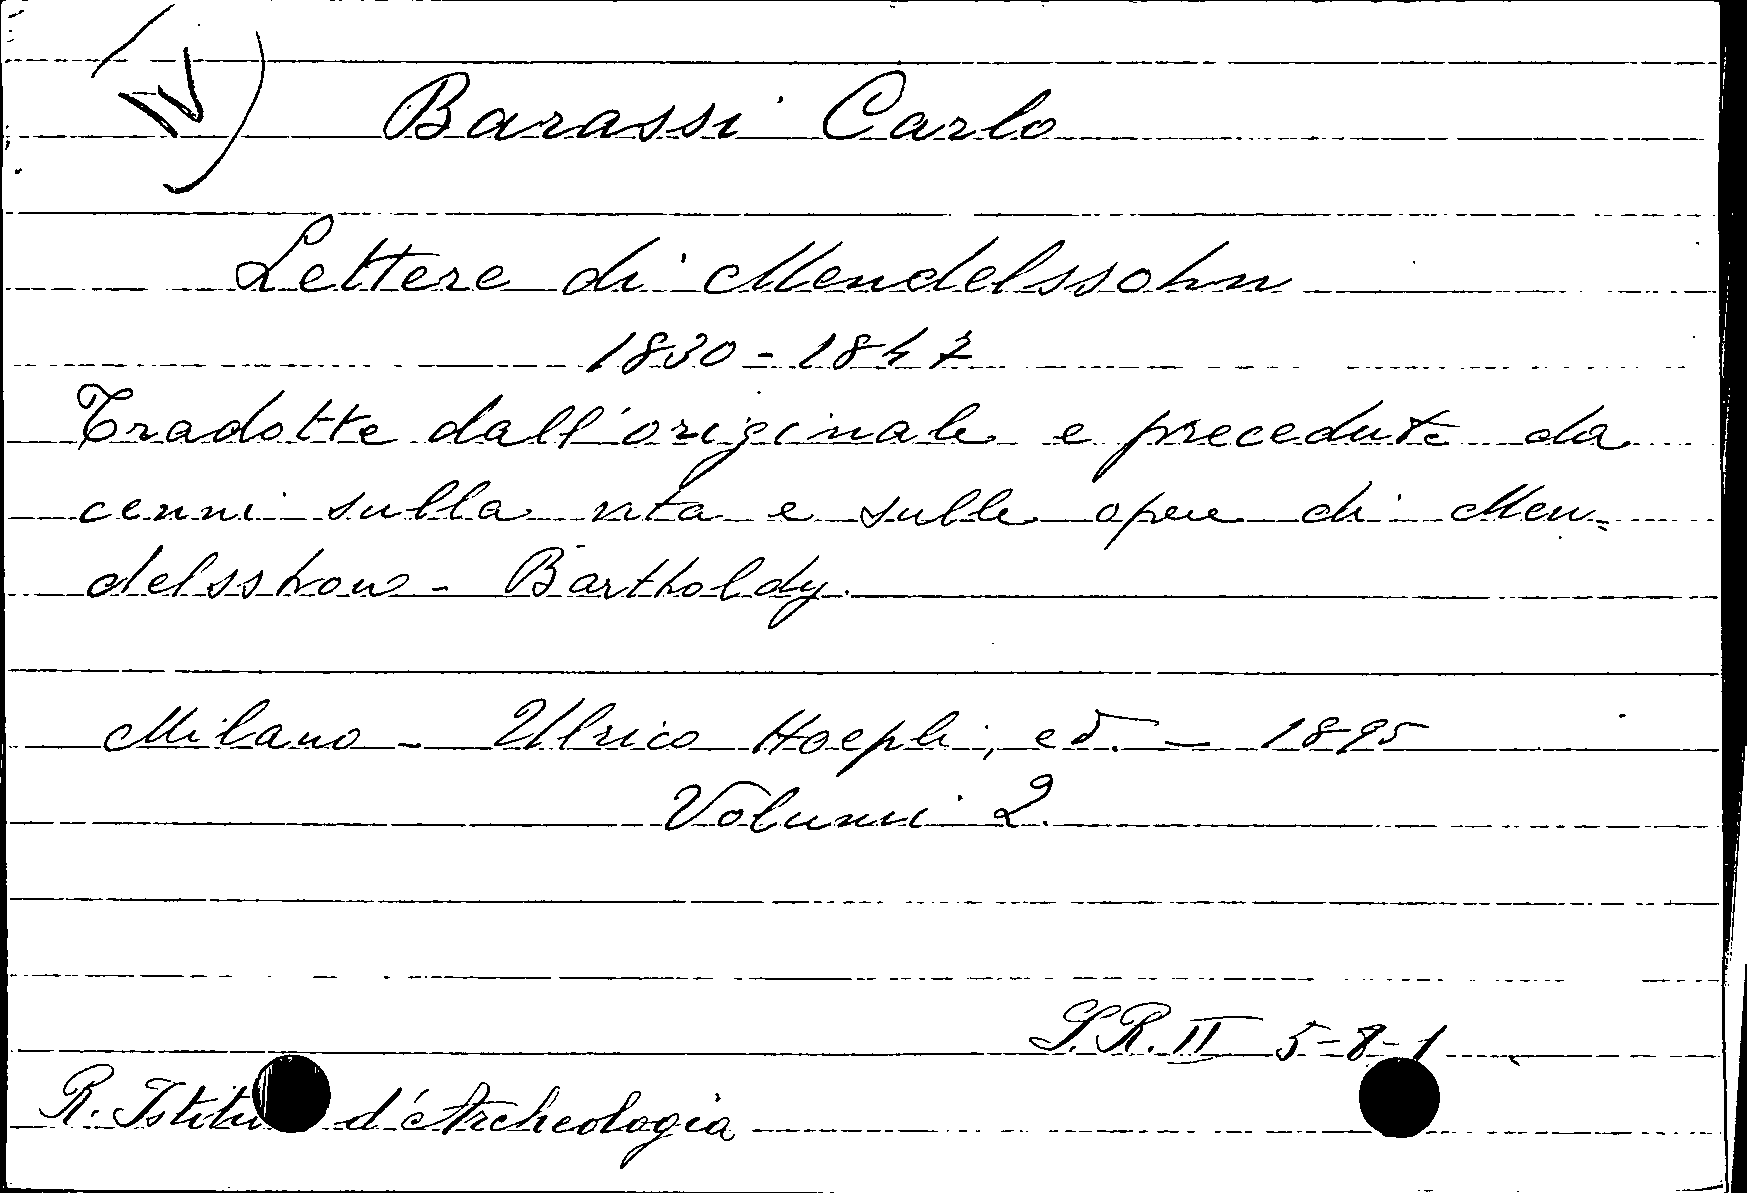 IV)
Barassi Carlo
Lettere di Mendelssohn
1830-1847
Tradotte dall'originale e precedute da
cenni sulla vita e sulle opere di Men=
delsshon - Bartholdy.
Milano - Ulrico Hoepli, ed. - 1895
Volumi 2.
S.R. II 5-8-1
R. Istitu d'Archeologia